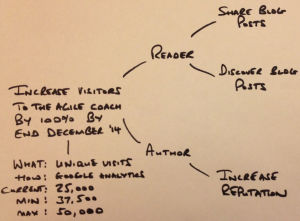 SHARE BLOG
POSTS
READER
DISCOVER BLOG
POSTS
INCREASE VISITORS
TO THE AGILE COACH
BY 100% BY
END DECEMBER '14
AUTHOR
INCREASE
REPUTATION
WHAT: UNIQUE VISITS
HOW: GOOGLE ANALYTICS
CURRENT: 25,000
MIN: 37,500
MAX: 50,000